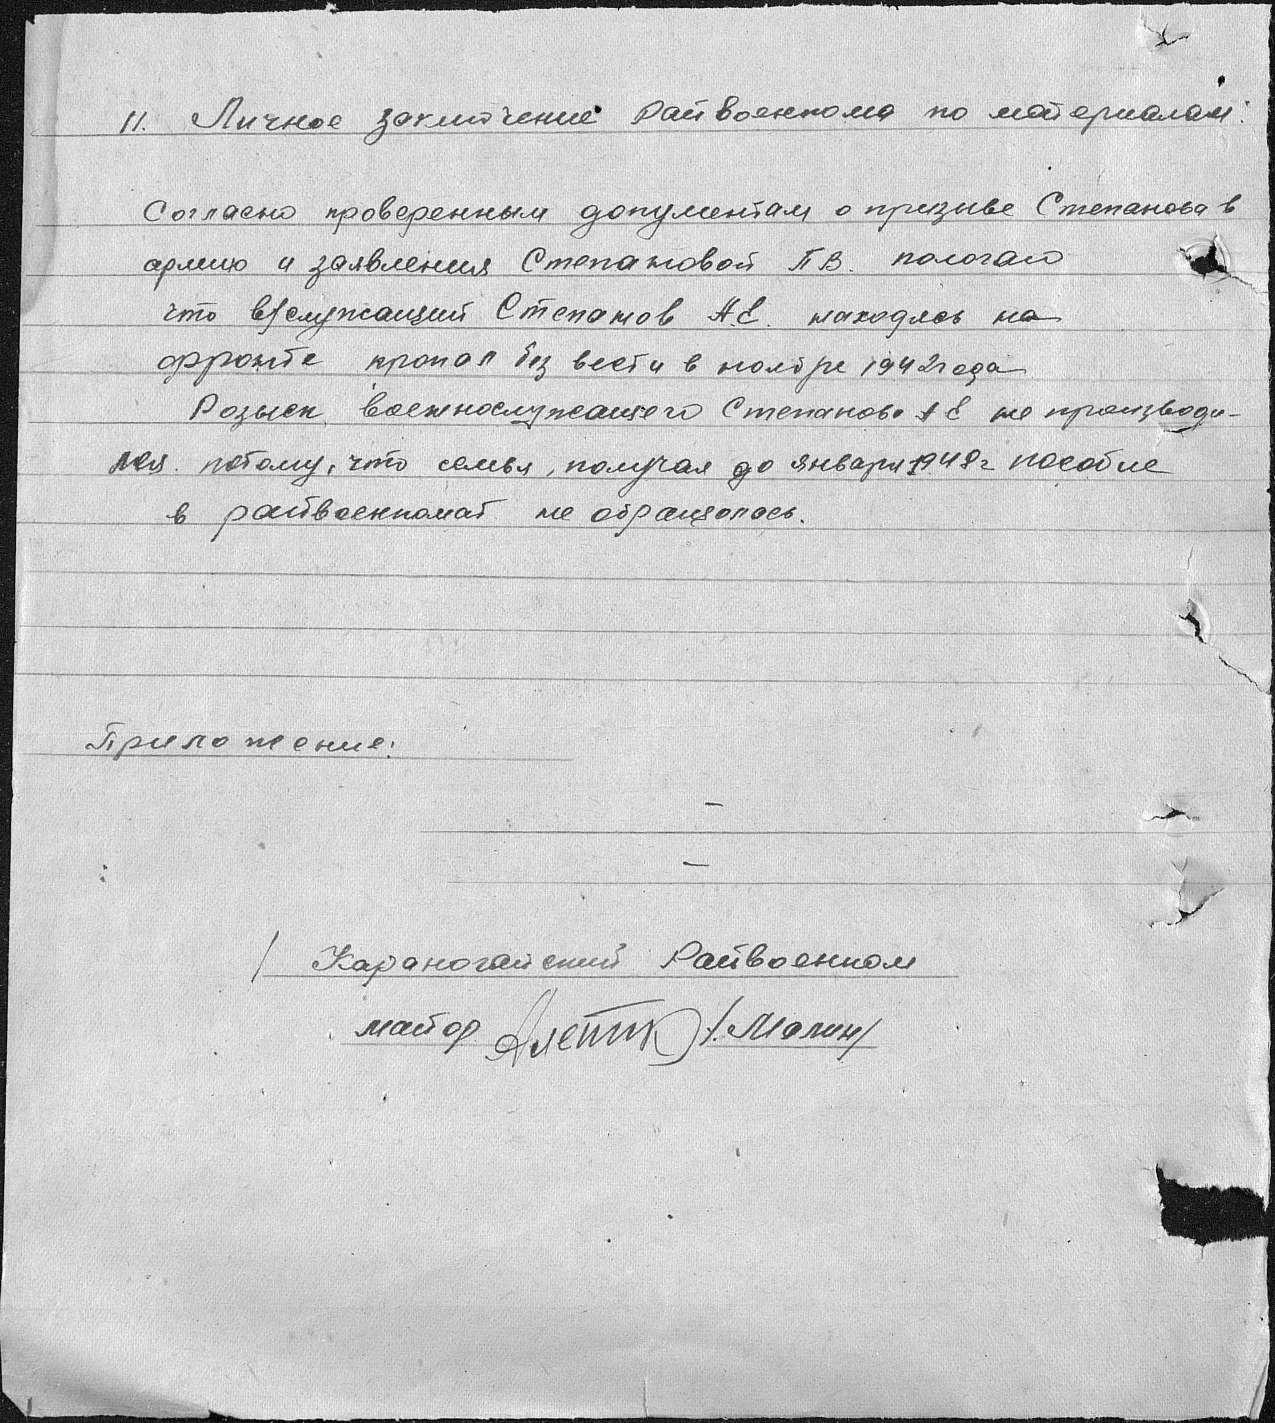 11. Личное заключение Райвоенкома по материалам:
Согласно проверенным документам о призыве Степанова в
армию и заявления Степановой П.В. полагаю
что в/служащий Степанов А.Е. находясь на
фронте пропал без вести в ноябре 1942 года
Розыск военнослужащего Степанова А Е не производи-
лся потому, что семья, получая до января 1948 г пособие
в райвоенкомат не обращалось.
Приложение:
–
–
/ Караногайский Райвоенком
майор /. Малин/